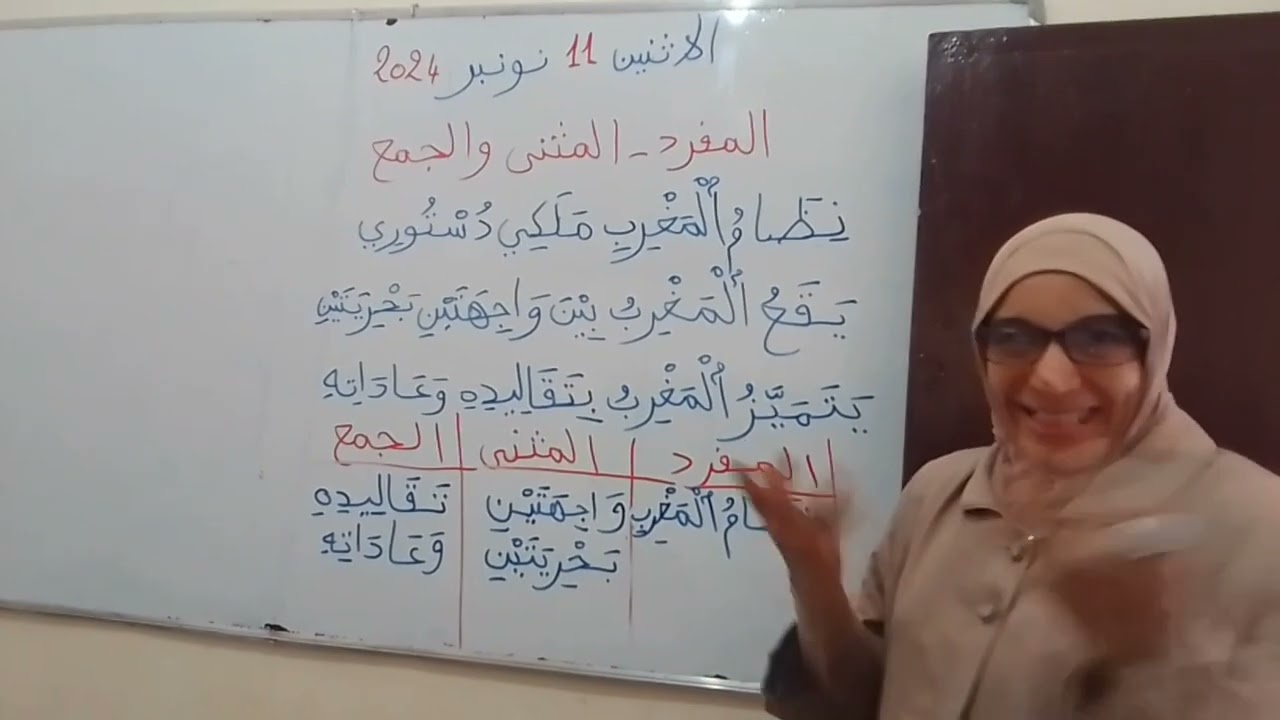 الاثنين 11 نونبر 2024
المفرد - المثنى والجمع
نِظَامُ ٱلْمَغْرِبِ مَلَكِي دُسْتُورِي
يَقَعُ ٱلْمَغْرِبُ بَيْنَ وَاجِهَتَيْنِ بَحْرِيَتَيْنِ
يَتَمَيَّزُ ٱلْمَغْرِبُ بِتَقَالِيدِهِ وَعَادَاتِهِ
المفرد المثنى الجمع
ٱلْمَغْرِبِ وَاجِهَتَيْنِ تَقَالِيدِهِ
بَحْرِيَتَيْنِ وَعَادَاتِهِ